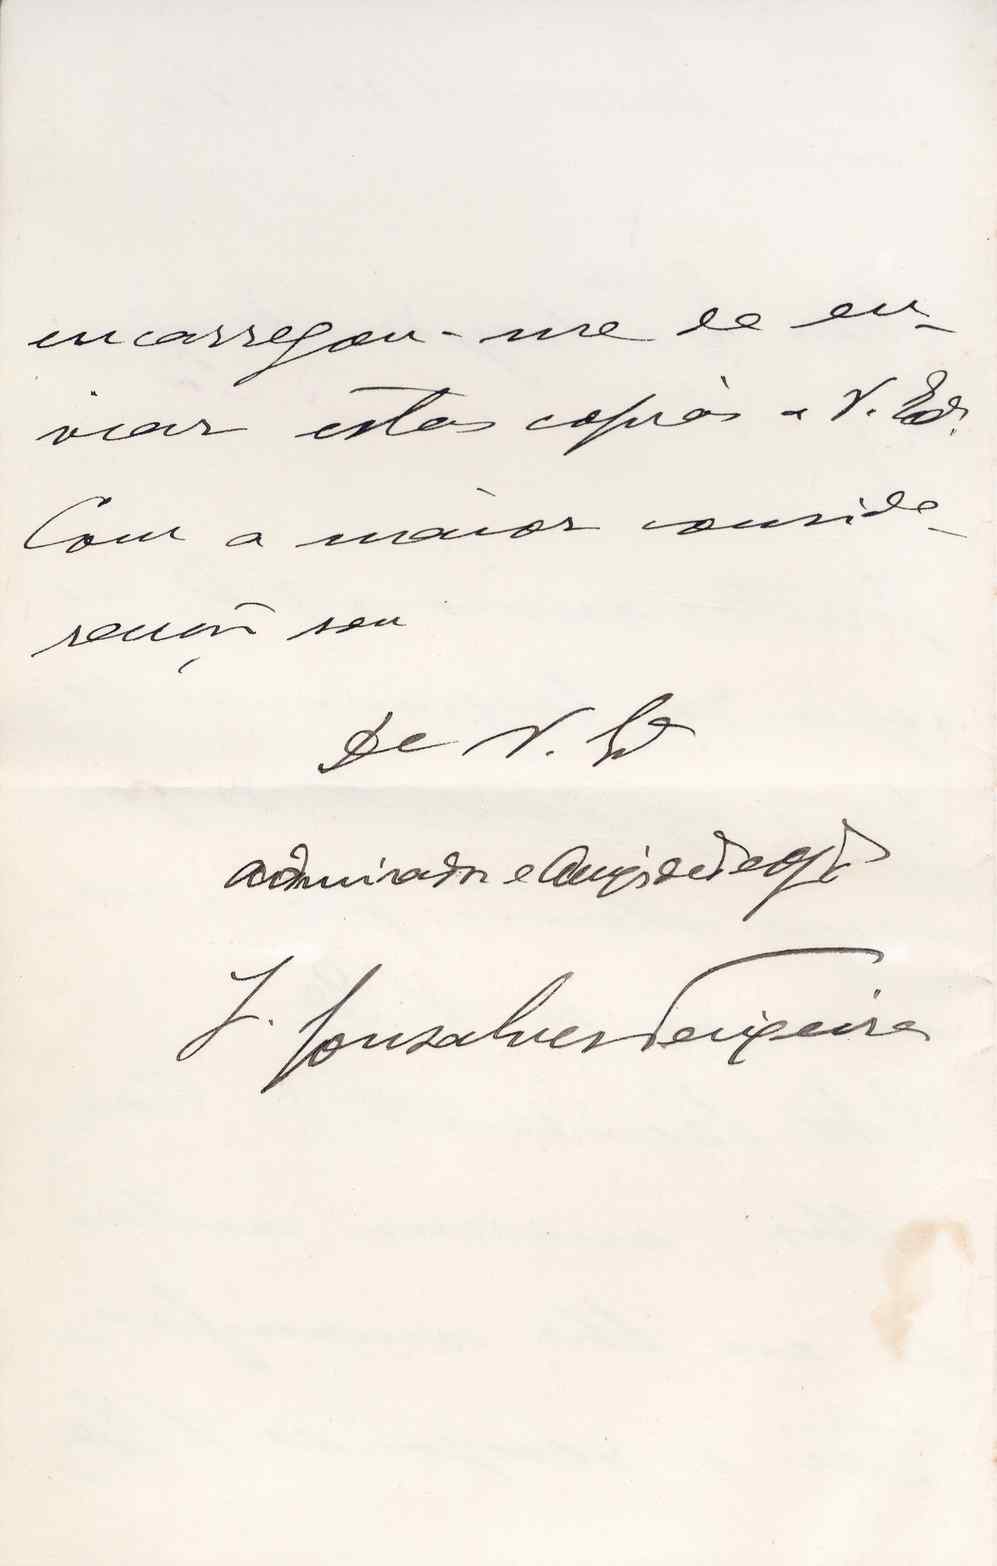 encarregou-me de en-
viar estas copias a V. Exª.
Com a maior conside-
ração sou
De V. Exª
admirador e
J. Gonsalves Teixeira